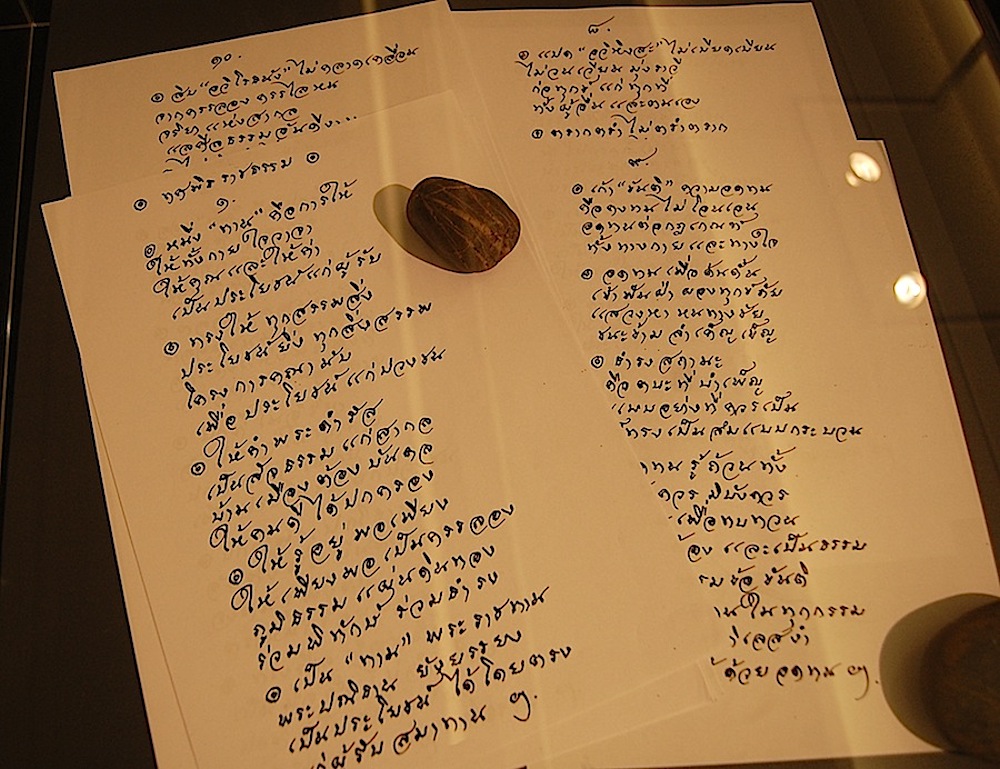 ๑๐.
๏ สิบ "อวิโรธนัง" ไม่คลาดเคลื่อน
จากครรลอง ครรไลหน
จริยาแห่งสากล
๏ ทศพิธราชธรรม ๏
๑.
๏ หนึ่ง "ทาน" คือการให้
ให้ทั้งกาย ใจ วาจา
ให้คุณและให้ค่า
เป็นประโยชน์แก่ผู้รับ
๏ ทรงให้ทุกสรรพสิ่ง
ประโยชน์ยิ่ง ทุกสิ่งสรรพ
โครงการคณานับ
เพื่อประโยชน์แก่ปวงชน
๏ ให้คำพระดำรัส
เป็นสัจธรรมแก่สากล
บ้านเมืองต้องบันดล
ให้คนดีได้ปกครอง
๏ ให้รู้อยู่พอเพียง
ให้เพียงพอเป็นครรลอง
ภูมิธรรมแผ่นดินทอง
ร่วมพิทักษ์ร่วมธำรง
๏ เป็น "ทาน" พระราชทาน
พระปณิธาน ยังยรรยง
เป็นประโยชน์ได้โดยตรง
แก่ผู้รับสมาทาน ฯ.
๘.
๏ แปด "อวิหิงสะ" ไม่เบียดเบียน
ไม่วนเวียน มุ่งราวี
ก่อทุกข์แก่ทุกที่
ทั้งผู้อื่นและตนเอง
๏ ตรากตรำไม่ตรำตราก
๙.
๏ เก้า "ขันติ" ความอดทน
คือคงทนไม่โอนเอน
อดทนต่อกฎเกณฑ์
ทั้งทางกายและทางใจ
๏ อดทนเพื่อดั้นด้น
เข้าฟันฝ่าผองทุกข์ภัย
แสวงหาหนทางชัย
ชนะข้ามลำเค็ญเข็ญ
๏ ธำรงสถานะ
คือตบะที่บำเพ็ญ
แบบอย่างที่ควรเป็น
ทรงเป็นสมแบบกระบวน
ทน รู้ถ้วนทั้ง
ควรมิบังควร
เพื่อทบทวน
ต้องและเป็นธรรม
รมข้อขันติ
ในทุกกรรม
ด้วยอดทน ฯ.